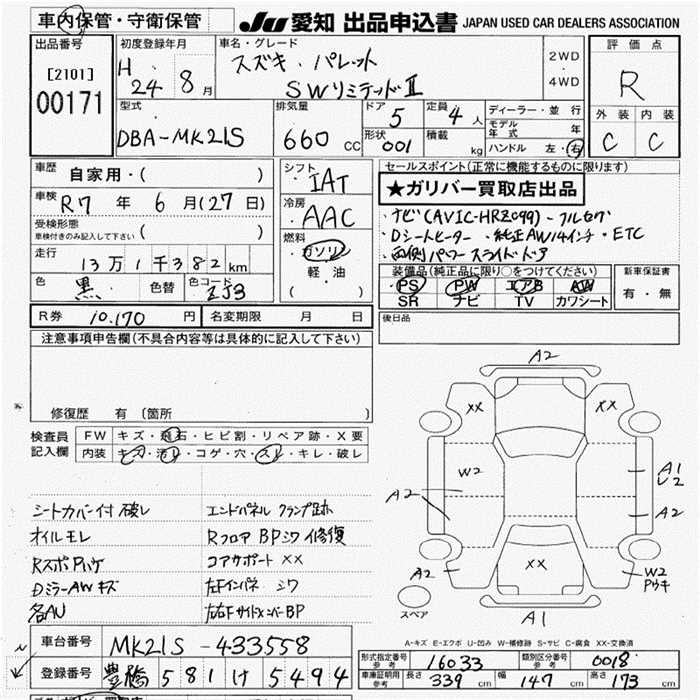 車内保管・守衛保管
JU 愛知 出品申込書 JAPAN USED CAR DEALERS ASSOCIATION
出品番号
[2101]
00171
初度登録年月
H 24 8 月
車名・グレード
スズキ・パレット
SWリミテッドⅡ
2WD
・
4WD
評価点
R
外装 内装
C C
型式
DBA-MK21S
排気量
660 CC
ドア 5
形状 001
定員 4 人
積載 kg
ディーラー・並行
モデル年式 年
ハンドル 左・右
車歴 自家用・( )
車検 R7 年 6 月(27日)
受検形態
車検付きのみ記入して下さい ( )
走行 13万1千382km
色 黒 色替 色コード ZJ3
シフト IAT
冷房 AAC
燃料
ガソリン
軽油
( )
セールスポイント(正常に機能するものに限ります)
★ガリバー買取店出品
・ナビ(AVIC-HRZ099)-フルセグ
・Dシートヒーター ・純正AW14インチ・ETC
・両側パワースライドドア
装備品(純正品に限り○をつけてください)
PS PW エアB AW
SR ナビ TV カワシート
新車保証書
有・無
R券 10.170 円 名変期限 月 日
後日品
注意事項申告欄(不具合内容等は具体的に記入して下さい)
修復歴 有(箇所 )
検査員記入欄
FW キズ・飛石・ヒビ割・リペア跡・X要
内装 キズ・汚レ・コゲ・穴・スレ・キレ・破レ
シートカバー付 破レ エンドパネル クランプ跡
オイルモレ Rフロア BPシワ 修復
RスポPハゲ コアサポート XX
DミラーAWキズ 左Fインパネ シワ
各AU 左右Fサイドメンバー BP
A2
XX XX
W2
A2
A1
U2
A2
XX
A2
W2
Pウキ
A1
スペア
A-キズ E-エクボ U-凹み W-補修跡 S-サビ C-腐食 XX-交換済
車台番号 MK21S-433558
登録番号 豊橋 581 け 5494
形式指定番号 参考 16033 類別区分番号 参考 0018
車庫証明用 参考 長さ 339 cm 幅 147 cm 高さ 173 cm